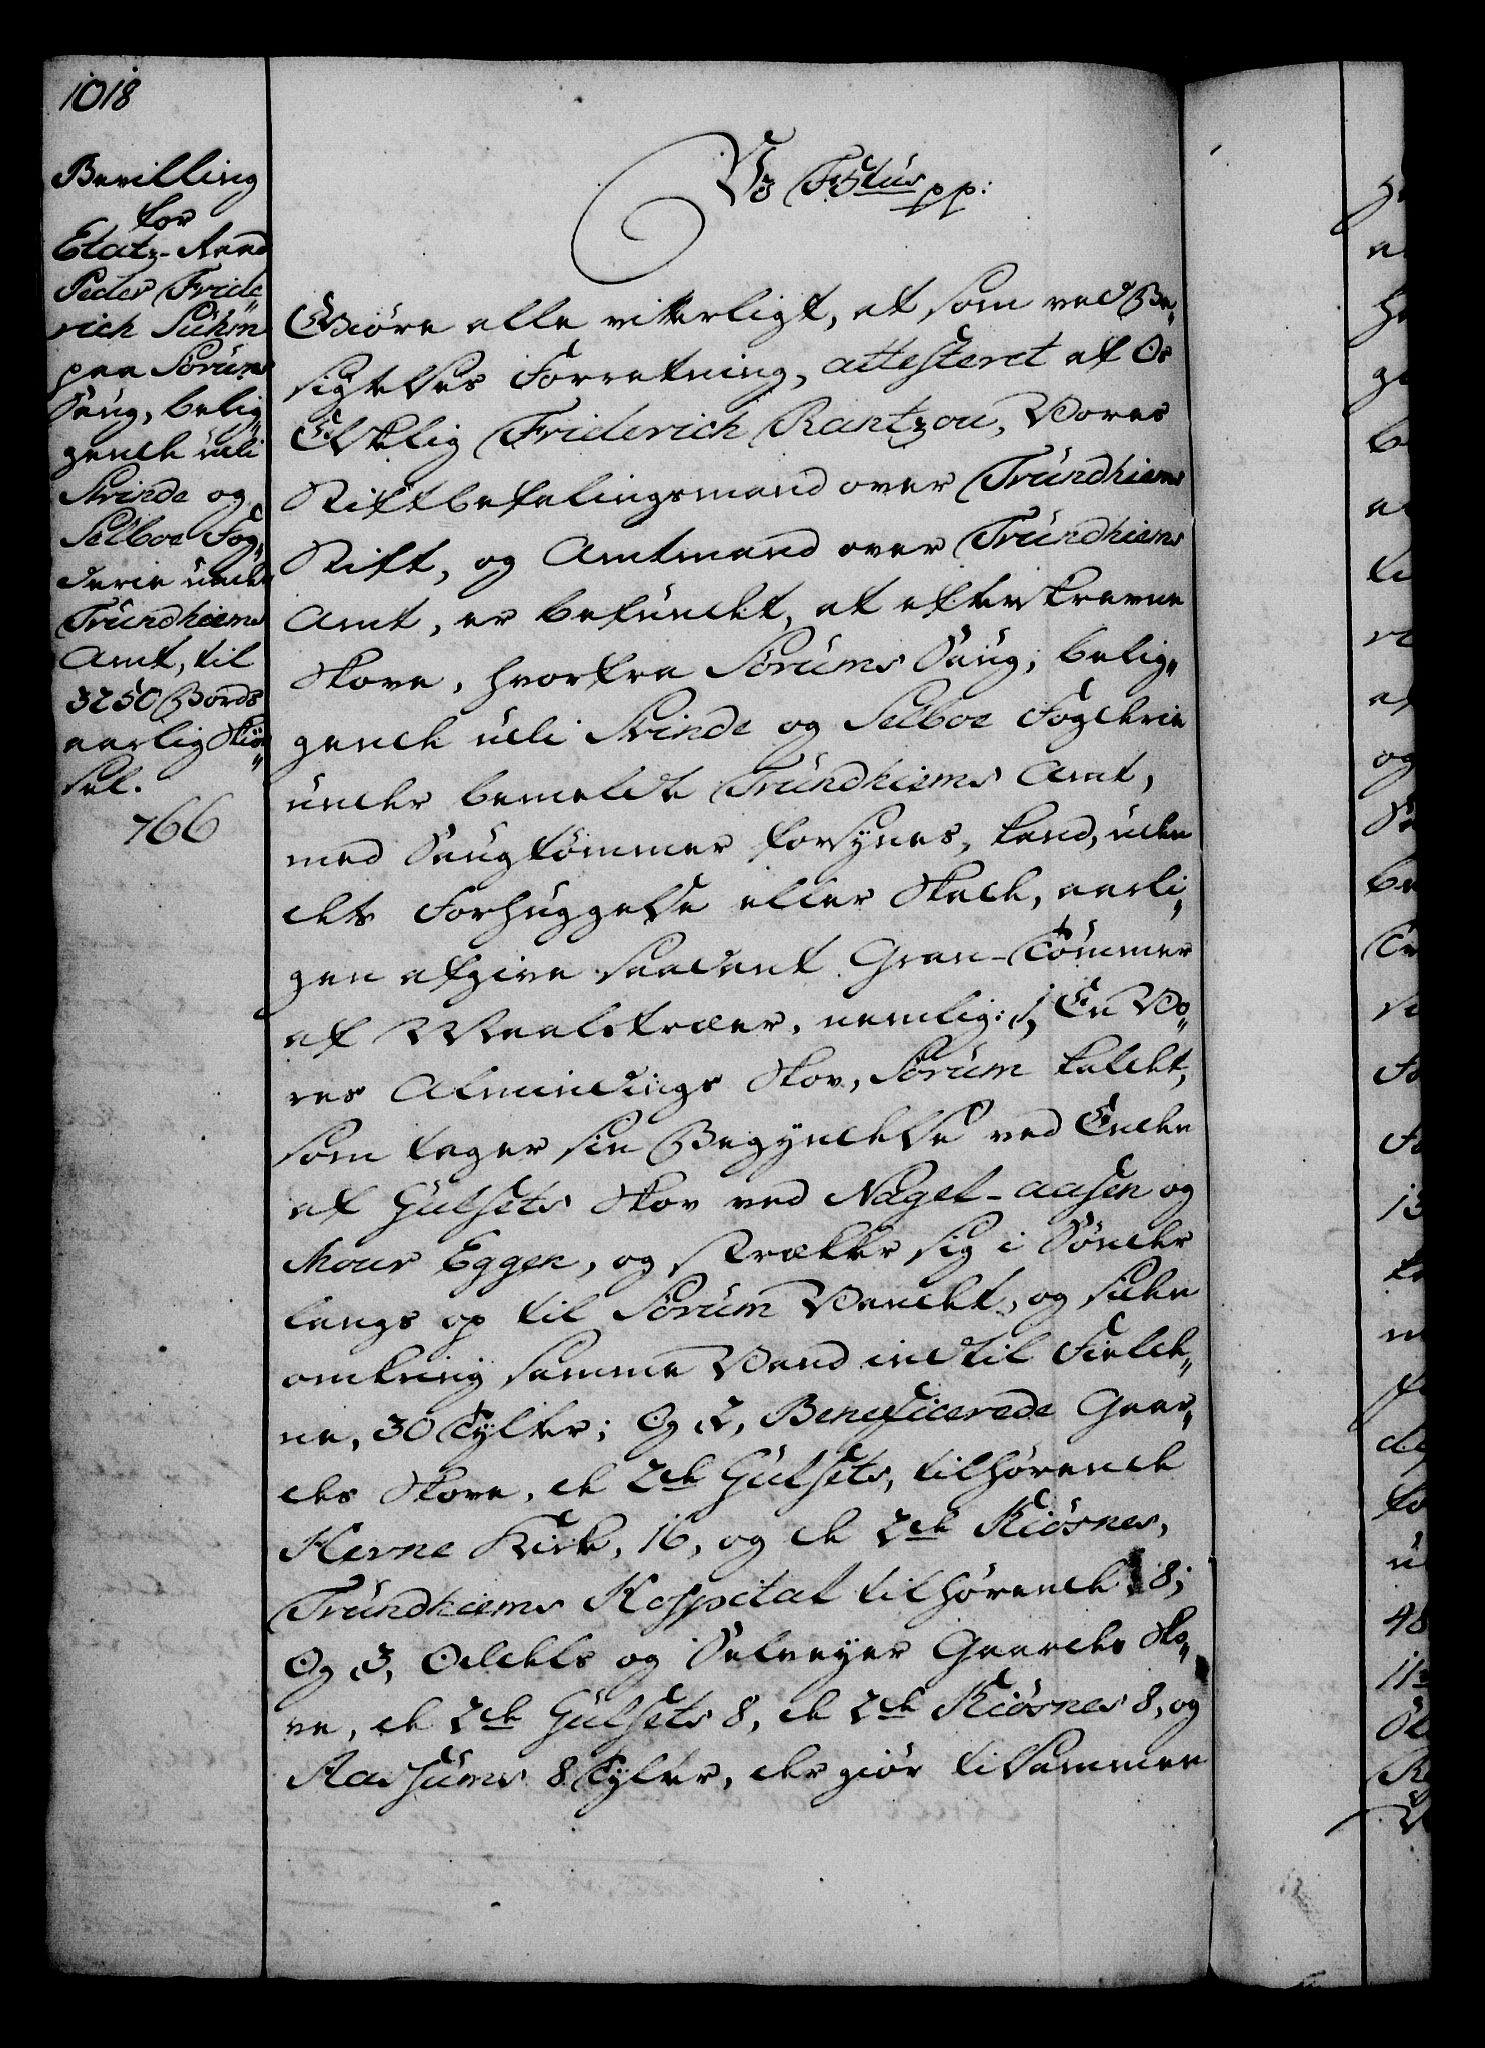 1018
Bevilling
for
Etatz-Raad
Peder Fride
rich Suhm
paa Sörums
Saug, belig
gende udi
Strinde og
Selboe Fog„
derie under
Trundhiems
Amt, til
3250 Bords
aarlig Skiö„
sel.
766
Vo FVtus pp:
Giöre alle vitterligt, at som ved Be„
sigtelses Forretning, attesteret af Os
Elskelig Friderich Rantzou, Vores
Stiftbefalingsmand over Trundhiems
Stift, og Amtmand over Trundhiems
Amt, er befundet, at efterskrevne
Skove, hvorfra Sörums Saug, belig„
gende udi Strinde og Selboe Fogderie
under bemeldte Trundhiems Amt,
med Saugtömmer forsynes, kand, uden
dets Forhuggelse eller Skade, aarli„
gen afgive saadant Gran-Tömmer
af Maalstræer, nemlig: 1, En Vo„
res Alminding's Skov, Sörum kaldet,
som tager sin Begyndelse ved Enden
af Gulsets Skov ved Nagel-aasen og
Mour Eggen, og strækker sig i Sönder
langs op til Sörum Vandet, og siden
omkring samme Vand ind til Fielde„
ne, 30 Tylter; Og 2, Beneficerede Gaar„
des Skove, de 2de Gulsets, tilhörende
Hevne Kirke, 16, og de 2de Kiösnes,
Trundhiems Hospital tilhörende, 8;
Og 3, Odels og Selveyer Gaardes Sko„
ve, de 2de Gulsets 8, de 2de Kiösnes 8, og
Aashums 8 Tylter, der giör tilsammen